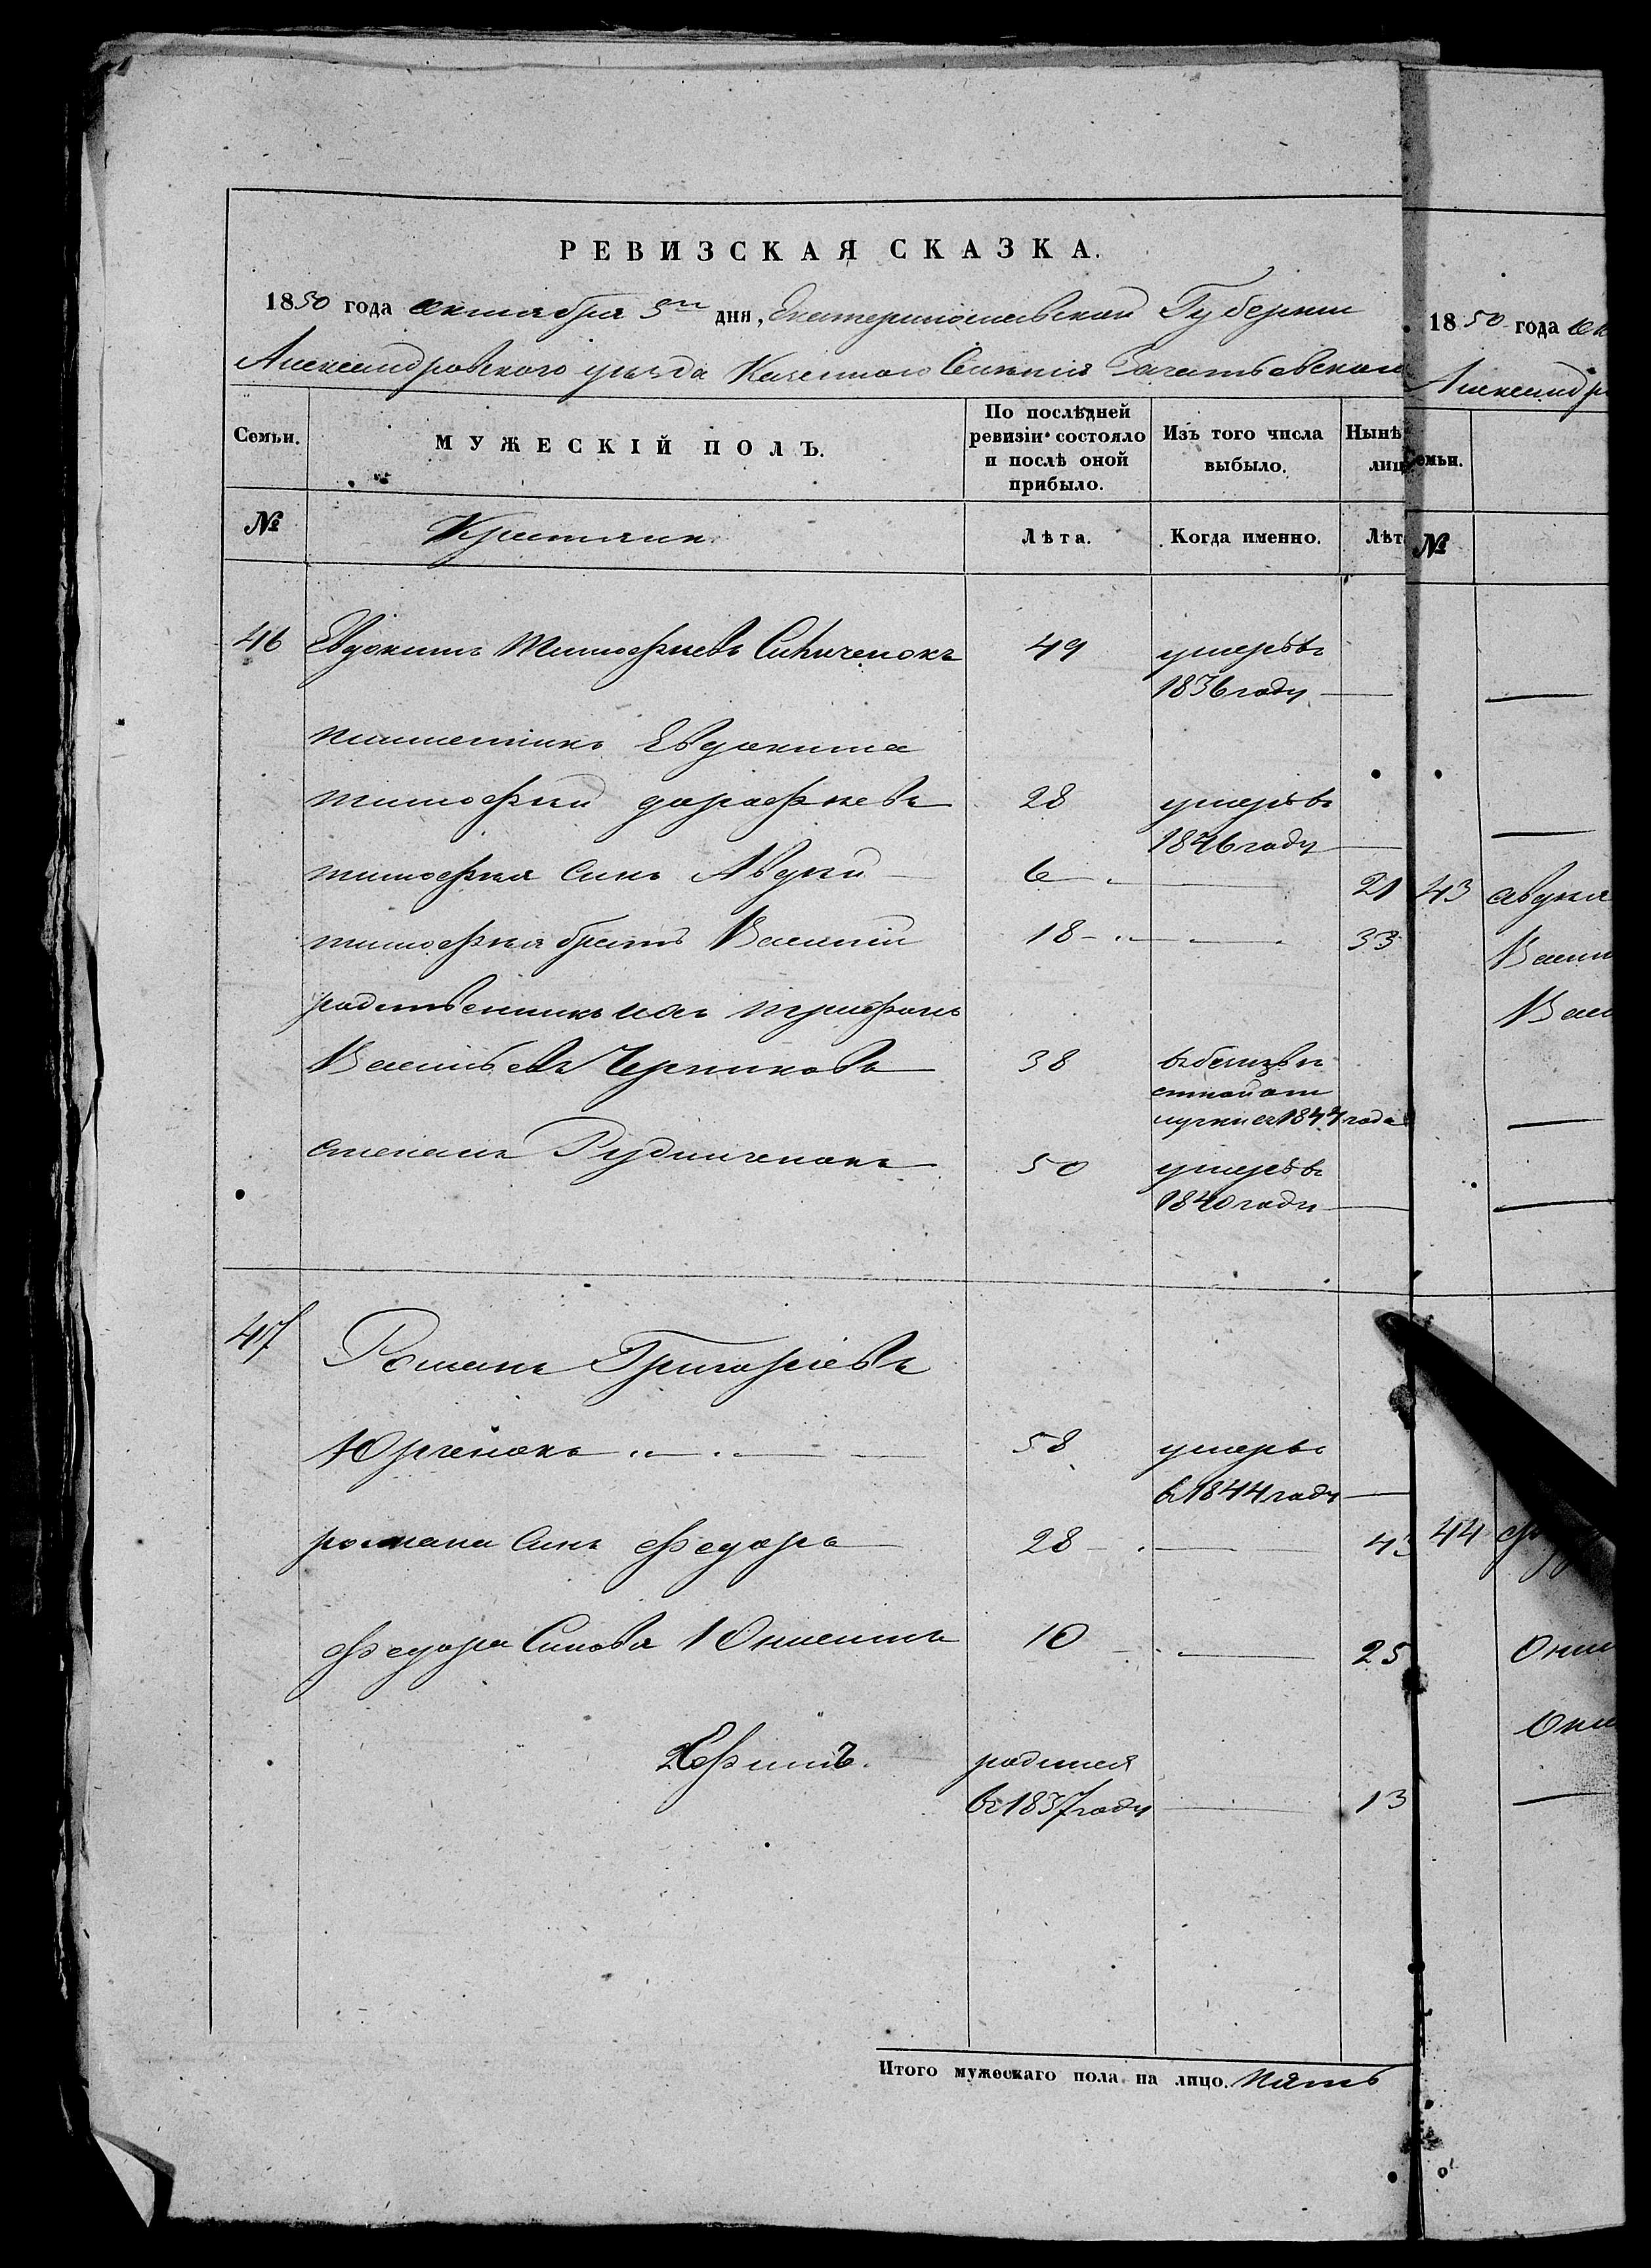 РЕВИЗСКАЯ СКАЗКА.
1850 года октября 5го дня, Екатеринославской Губернии
Александровского уезда Казенного Селения Зачатьевского
Семьи.
МУЖЕСКІЙ ПОЛЪ.
По послѣдней ревизіи состояло и послѣ оной прибыло.
Изъ того числа выбыло.
Нынѣ лиц
№
Крестьяне
Лѣта.
Когда именно.
Лѣт
46 Евдокимъ Тимофеевъ 49 умеръ въ
1836 году
племенникъ Евдокима
тимофей дорофеевъ 28 умеръ въ
1846 году
тимофея синъ Авдей 6 21
тимофея братъ Василий 18 33
родственникъ ихъ трифонъ
Васильевъ Черниковъ 38
1844 года
степанъ Рудниченокъ 50 умеръ въ
1840 году
47 Романъ Григорьевъ
Юрченокъ 58 умеръ
въ 1844 году
романа синъ федоръ 28 43
федора синовья 1 Онисимъ 10 25
2 Ефимъ. родился
въ 1837 году 13
Итого мужескаго пола на лицо. пять
1850 года
Александр
Семьи.
№
43 авдея
Васи
Васи
44
Они
Они